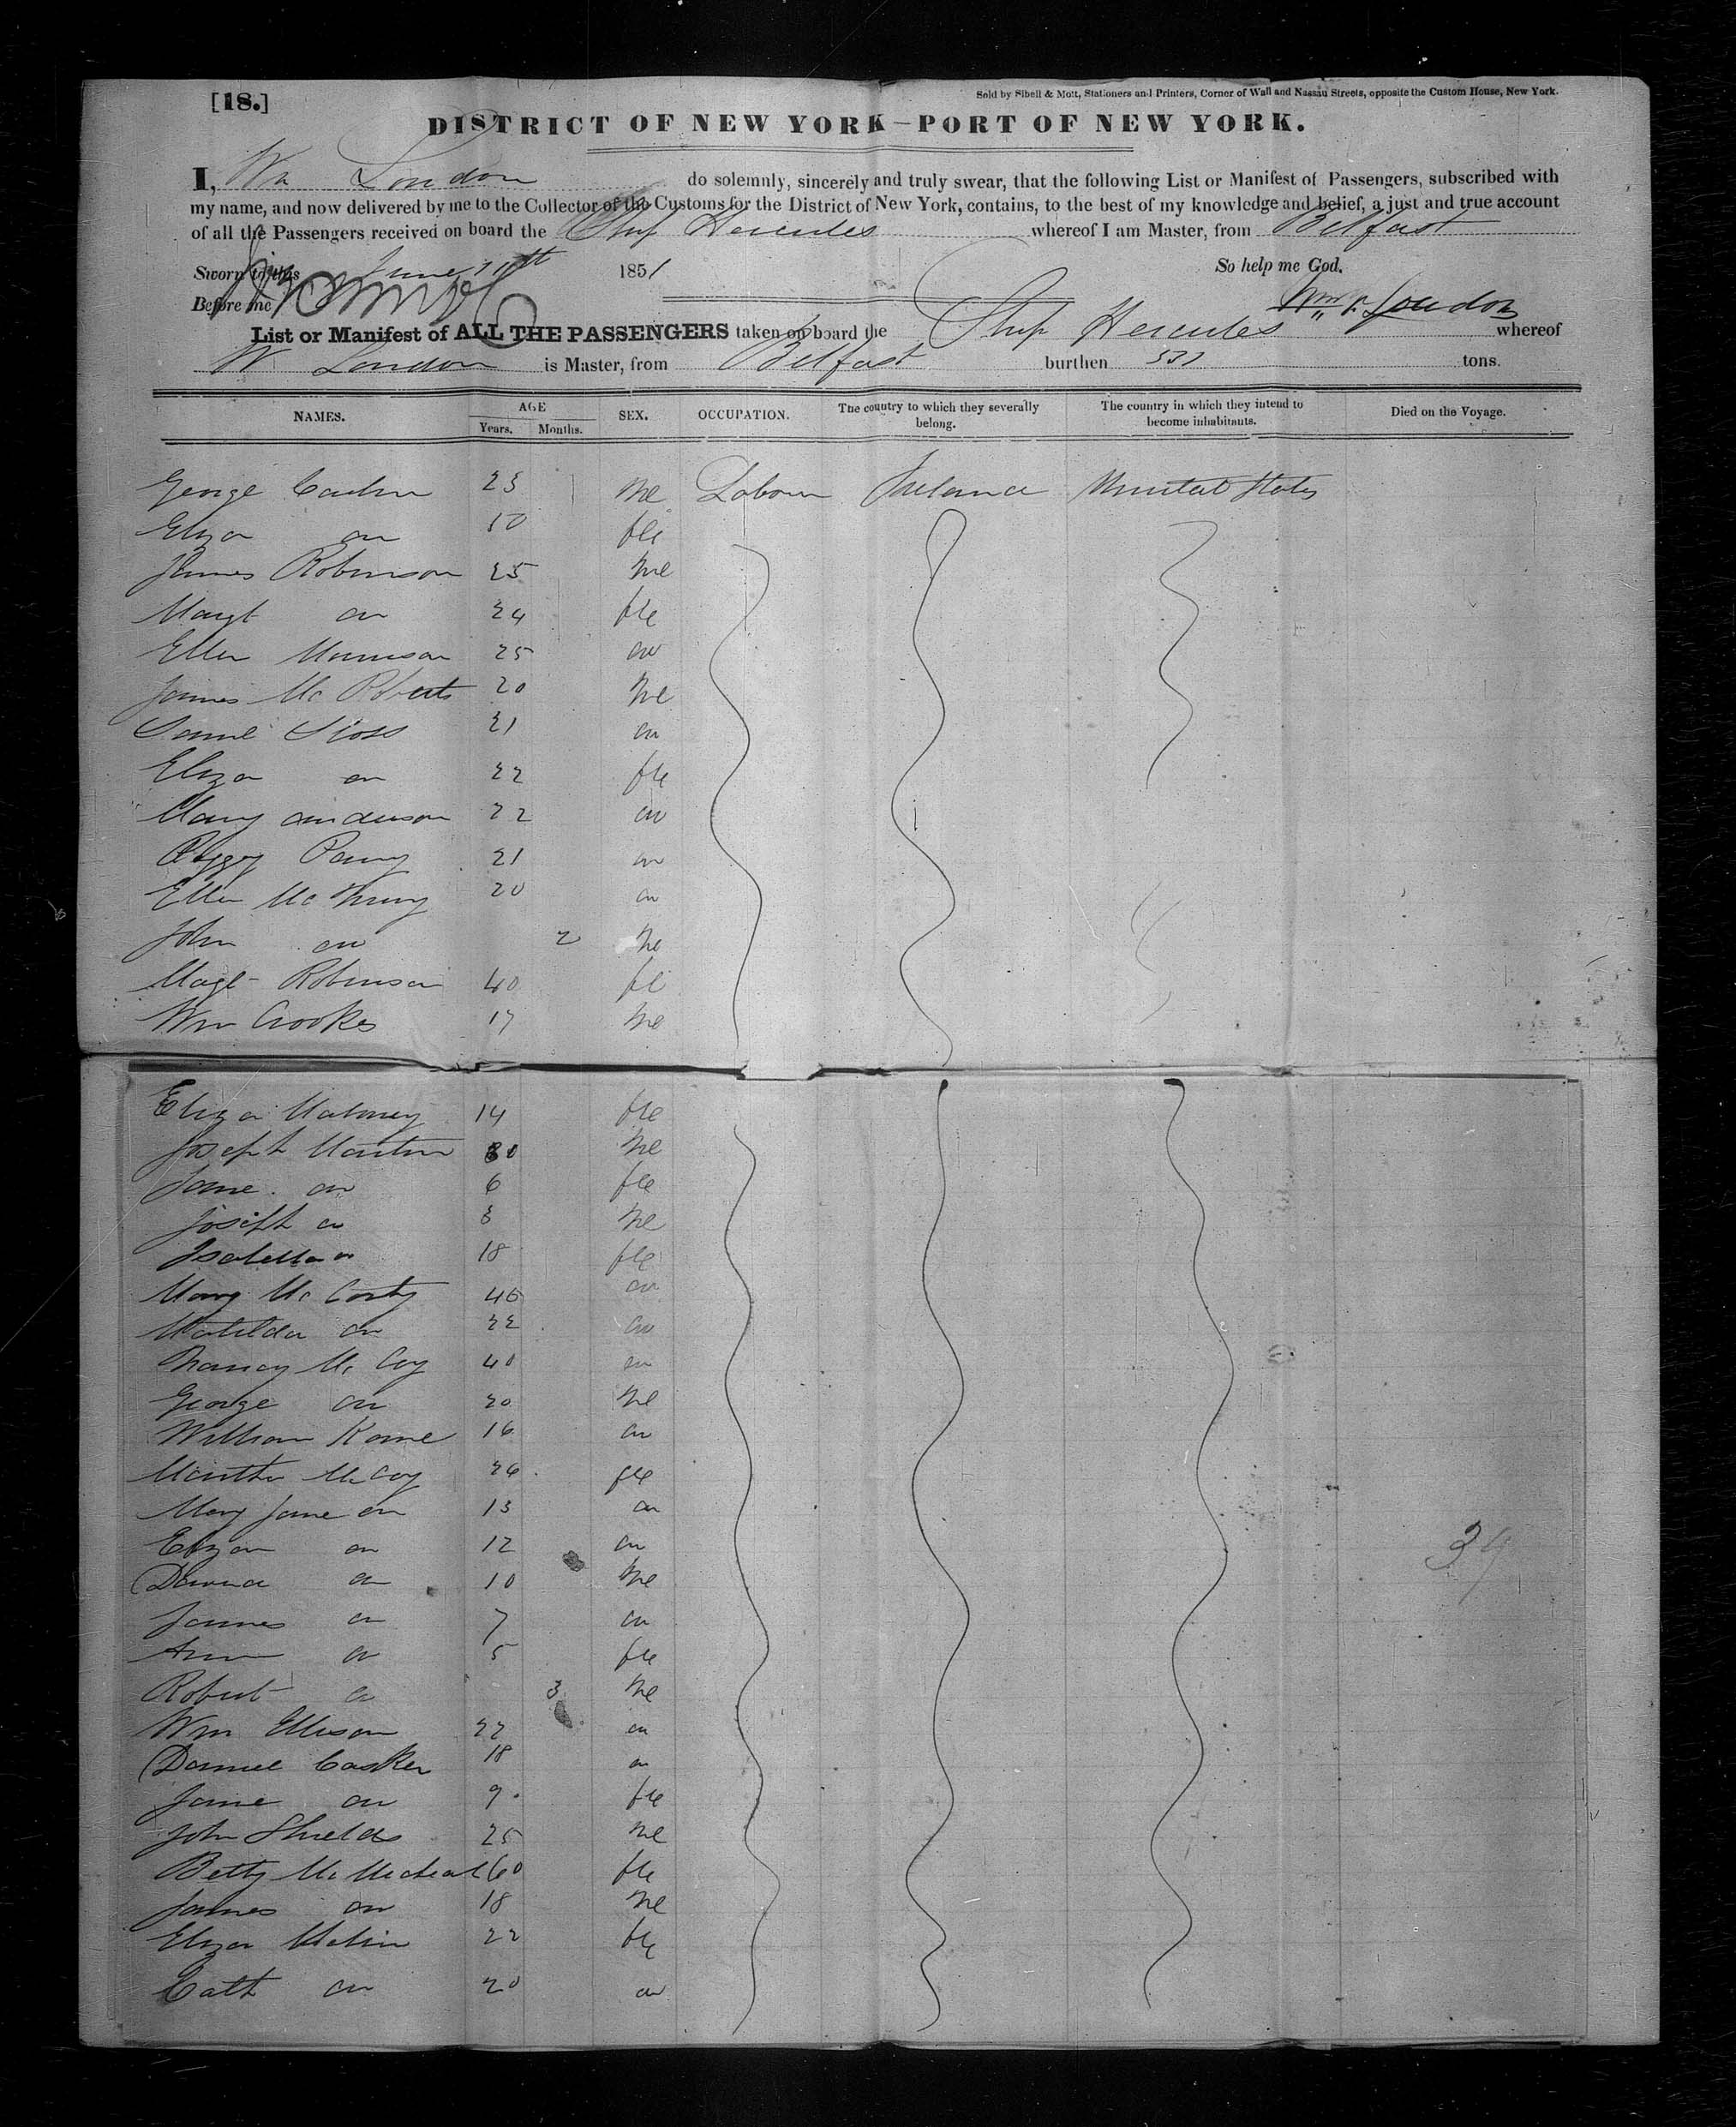 [18.]
Sold by Sibell & Mott, Stationers and Printers, Corner of Wall and Nassau Streets, opposite the Custom House, New York.
DISTRICT OF NEW YORK—PORT OF NEW YORK.
I, Wm London do solemnly, sincerely and truly swear, that the following List or Manifest of Passengers, subscribed with
my name, and now delivered by me to the Collector of the Customs for the District of New York, contains, to the best of my knowledge and belief, a just and true account
of all the Passengers received on board the Ship Hercules whereof I am Master, from Belfast
Sworn to this June 11th 1851 So help me God.
Before me Wm London
List or Manifest of ALL THE PASSENGERS taken on board the Ship Hercules whereof
W London is Master, from Belfast burthen 531 tons.
NAMES. AGE SEX. OCCUPATION. The country to which they severally belong. The country in which they intend to become inhabitants. Died on the Voyage.
Years. Months.
George 23 Me Labour Ireland United States
Eliza do 10 fle
James Robinson 25 Me
Margt do 24 fle
Ellen Morrison 25 do
James Mc Roberts 20 Me
Saml Sloss 21 do
Eliza do 22 fle
Mary anderson 22 do
Peggy 21 do
Ellen 20 do
John do 2 Me
Magt Robinson 40 fle
Wm Crooks 17 Me
Eliza 14 fle
Joseph Martin 30 Me
Jane do 6 fle
Joseph do 3 Me
Isabella do 18 fle
Mary Mc Carty 46 do
Matilda do 22 do
Nancy Mc Coy 40 do
George do 20 Me
William Kane 16 do
Martha Mc Coy 36 fle
Mary Jane do 13 do
Eliza do 12 do
David do 10 Me
James do 7 do
Ann do 5 fle
Robert do 3 Me
Wm Ellison 22 do
Daniel Casker 18 do
Jane do 9 fle
John Shields 25 Me
Betty Mc Micheal 60 fle
James do 18 Me
Eliza 22 fle
Cath do 20 do
39